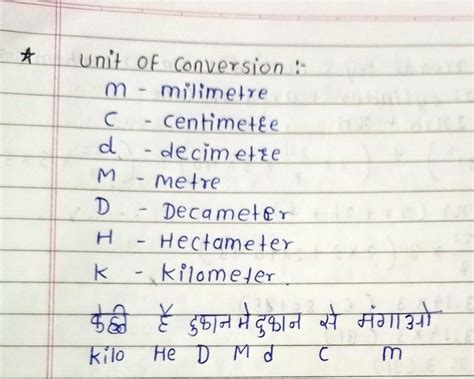 * unit of conversion :-
m - milimetre
C - centimetre
d - decimetre
M - metre
D - Decameter
H - Hectameter
K - Kilometer.
है दुकान मे दुकान से मंगाओ
Kilo He D M d C m